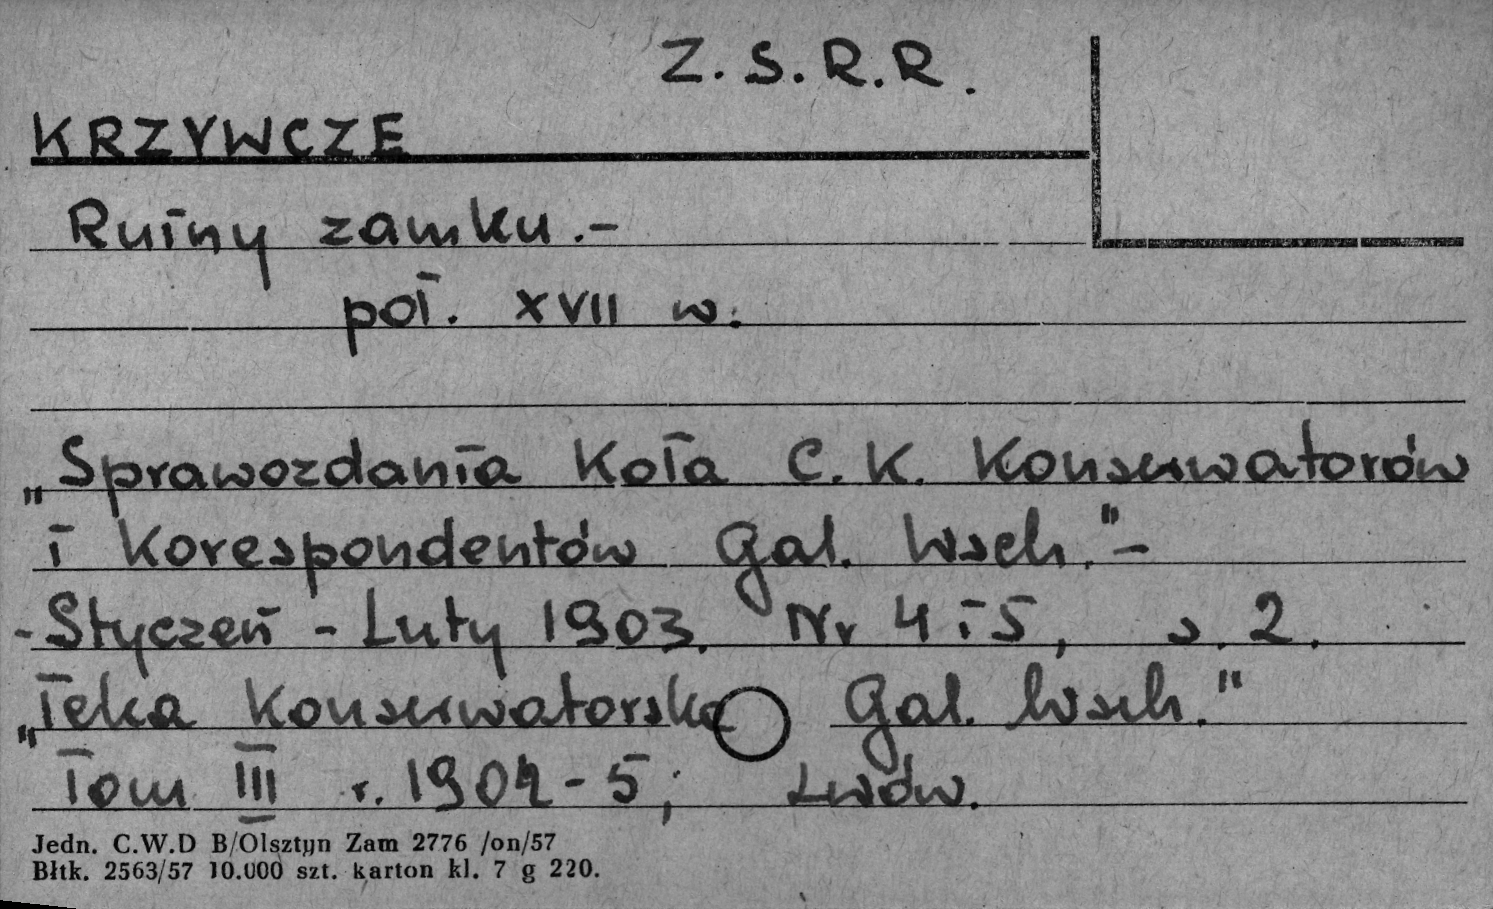 Z.S.R.R.
KRZYWCZE
Ruiny zamku.-
poł. XVII w.
„Sprawozdania Koła C.K. Konserwatorów
i Korespondentów Gal. Wsch."-
-Styczeń - Luty 1903. Nr 4 i 5, s. 2.
„Teka Konserwatorska Gal. Wsch."
Tom III r. 1904-5; Lwów.
Jedn. C.W.D B/Olsztyn Zam 2776 /on/57
Błtk. 2563/57 10.000 szt. karton kl. 7 g 220.